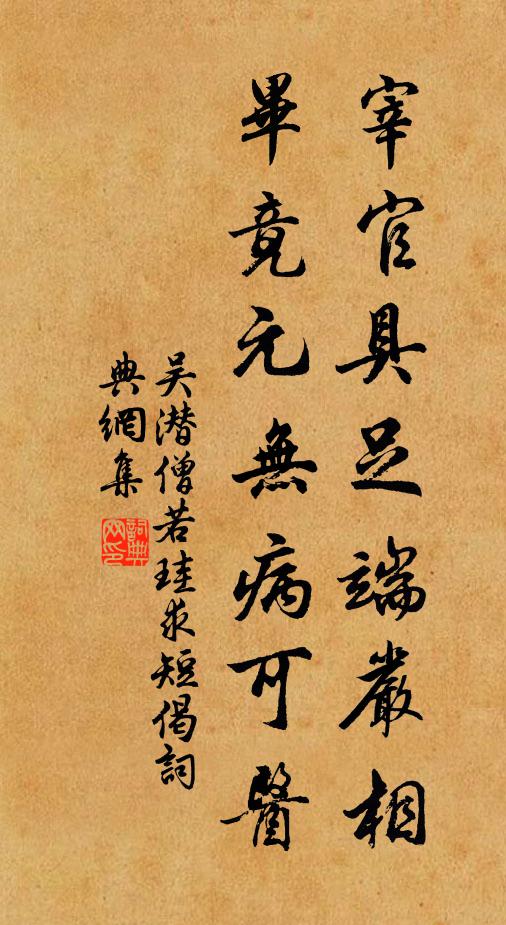 宰官具足端嚴相
畢竟元無病可醫
吴潜僧若珪求短偈詞
典網集
詞典网印